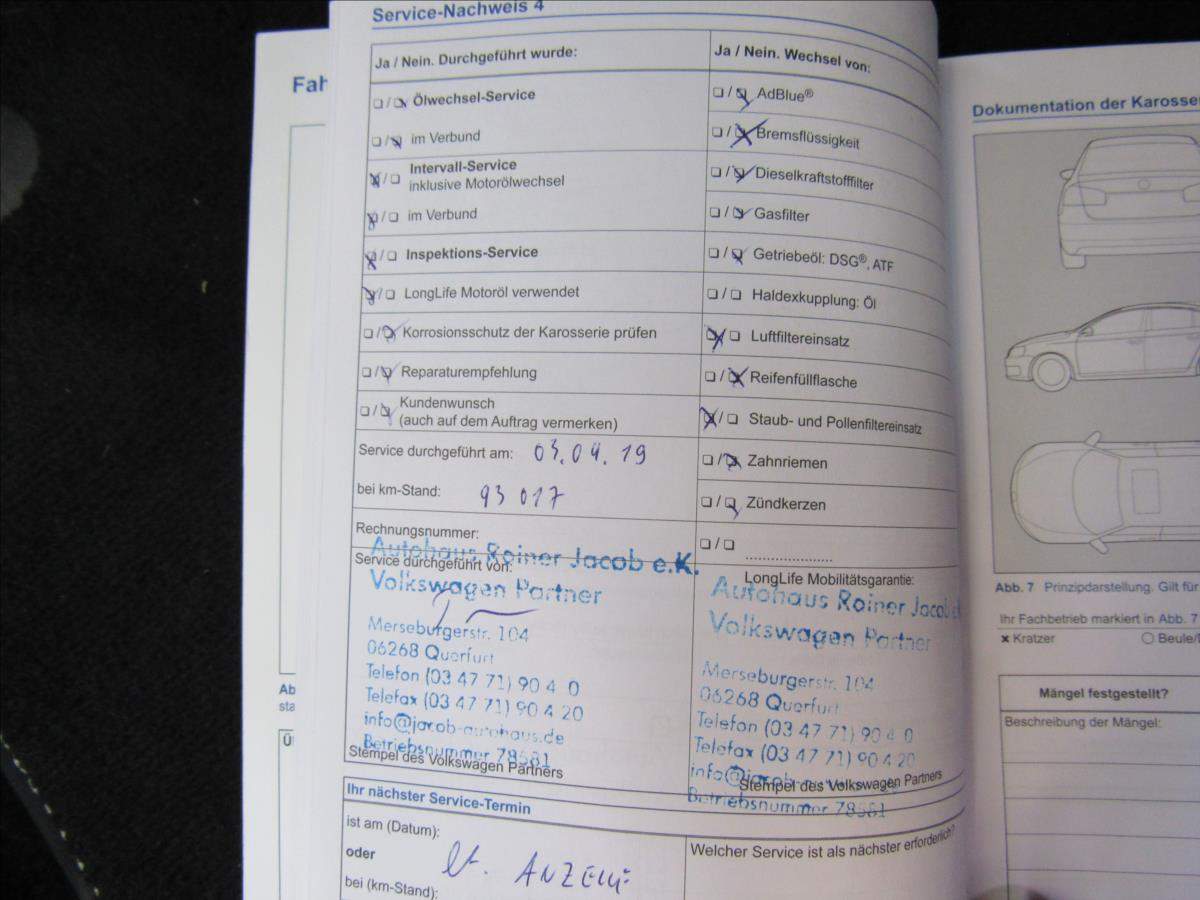 Service-Nachweis 4
Ja / Nein. Durchgeführt wurde:
❏ / ❏ Ölwechsel-Service
❏ / ❏ im Verbund
❏ / ❏ Intervall-Service
inklusive Motorölwechsel
❏ / ❏ im Verbund
❏ / ❏ Inspektions-Service
❏ / ❏ LongLife Motoröl verwendet
❏ / ❏ Korrosionsschutz der Karosserie prüfen
❏ / ❏ Reparaturempfehlung
❏ / ❏ Kundenwunsch
(auch auf dem Auftrag vermerken)
Service durchgeführt am: 03.04.19
bei km-Stand: 93 017
Rechnungsnummer:
Service durchgeführt von:
Autohaus Rainer Jacob e.K.
Volkswagen Partner
Merseburgerstr. 104
06268 Querfurt
Telefon (03 47 71) 90 4 0
Telefax (03 47 71) 90 4 20
info@jacob-autohaus.de
Betriebsnummer 78581
Stempel des Volkswagen Partners
Ja / Nein. Wechsel von:
❏ / ❏ AdBlue®
❏ / ❏ Bremsflüssigkeit
❏ / ❏ Dieselkraftstofffilter
❏ / ❏ Gasfilter
❏ / ❏ Getriebeöl: DSG®, ATF
❏ / ❏ Haldexkupplung: Öl
❏ / ❏ Luftfiltereinsatz
❏ / ❏ Reifenfüllflasche
❏ / ❏ Staub- und Pollenfiltereinsatz
❏ / ❏ Zahnriemen
❏ / ❏ Zündkerzen
❏ / ❏ ....................
LongLife Mobilitätsgarantie:
Autohaus Rainer Jacob
Volkswagen Partner
Merseburgerstr. 104
06268 Querfurt
Telefon (03 47 71) 90 4 0
Telefax (03 47 71) 90 4 20
Stempel des Volkswagen Partners
Betriebsnummer 78581
Ihr nächster Service-Termin
ist am (Datum):
oder
lt. ANZEIGE
bei (km-Stand):
Welcher Service ist als nächster erforderlich?
Fah
Ab
sta
Ü
Dokumentation der Karosse
Abb. 7 Prinzipdarstellung. Gilt für
Ihr Fachbetrieb markiert in Abb. 7
x Kratzer ○ Beule/
Mängel festgestellt?
Beschreibung der Mängel: